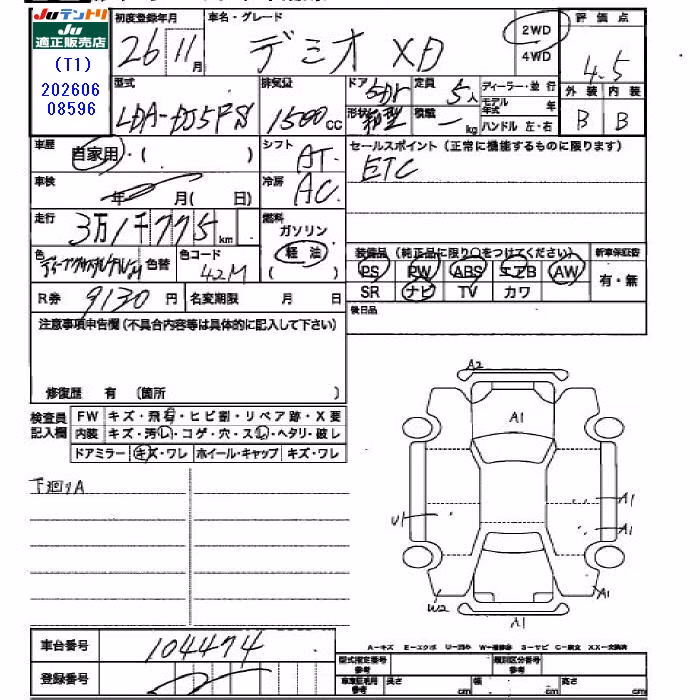 Juテントリ
Ju
適正販売店
(T1)
202606
08596
初度登録年月
26年11月
車名・グレード
デミオ XD
2WD
4WD
評価点
4.5
外装 内装
B B
型式
LDA-DJ5FS
排気量
1500cc
ドア 5Dr
定員 5人
形状 箱型
積載 一 kg
ディーラー・並行
モデル年式 年
ハンドル 左・右
車歴
自家用・( )
シフト
AT
セールスポイント(正常に機能するものに限ります)
ETC
車検
年 月( 日)
冷房
AC
走行
3万1千775km
燃料
ガソリン
軽油
( )
色
ディープクリスタルブルーM
色替
色コード
42M
装備品(純正品に限り○をつけてください)
新車保証書
PS PW ABS エアB AW
有・無
SR ナビ TV カワ
R券 9130円
名変期限 月 日
後日品
注意事項申告欄(不具合内容等は具体的に記入して下さい)
修復歴 有 〔箇所 〕
検査員
記入欄
FW キズ・飛石・ヒビ割・リペア跡・X要
内装 キズ・汚レ・コゲ・穴・スレ・ヘタリ・破レ
ドアミラー キズ・ワレ ホイール・キャップ キズ・ワレ
下回りA
A2
A1
A1
U1
A1
W2
A1
A1
車台番号
104474
登録番号
A−キズ E−エクボ U−凹み W−補修跡 S−サビ C−腐食 XX−交換済
型式指定番号
参考
類別区分番号
参考
車庫証明用
参考
長さ cm
幅 cm
高さ cm